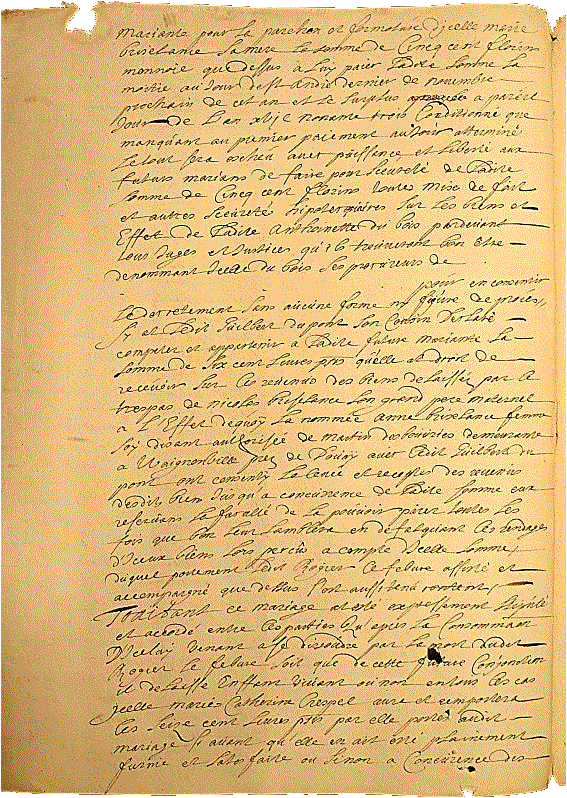 mariante pour la parchon et formoture d'icelle marie
briselance sa mere la somme de Cincq cent florins
monnoie que dessus a luy paier ladite somme la
moitié au Jour de St Andre dernier de novembre
prochain de cet an et le surplus a pareil
Jour de L'an xvjc nonante trois Conditionné que
manquant au premier paiement au Jour atterminé
le tout sera escheu avec puissance et Liberté aux
futurs marians de faire pour seureté de ladite
somme de Cincq cent florins toutes mise de fait
et autres seuretés hipotecquaires sur les biens et
Effet de ladite Anthoinette du bois pardevant
tous Juges et Justices qu'ils trouveront bon estre
denommant Icelle du bois ses procureurs de
pour en consentir
Le decretement sans aucune forme ny figure de proces,
sy at ledit Guilbert du pont son Cousin declaré
competer et appartenir a ladite future mariante la
somme de six cent livres pts qu'elle at droit de
recevoir sur les revenus des biens delaissés par le
trespas de nicolas briselance son grand pere maternel
a L'Effet dequoy la nommée Anne briselance femme
soy disant authorisée de martin desbouvries demeurante
a Wagnonville prez de Douay avec ledit Guilbert du
pont ont consenty la levée et recepte des revenus
desdits biens Jusqu'a concurence de ladite somme eux
reservans la faculté de la pouvoir paier toutes les
fois que bon leur samblera en defalquant les rendages
d'Iceux biens lors percus a compte d'Icelle somme,
duquel portement ledit Rogier le febure assisté et
accompagné que dessus s'ont aussi tenu content
Traitant ce mariage at esté expressement stipulé
et accordé entre les parties qu'apres la Consommant
d'Iceluy venant a se dissoudre par la mort dudit
Rogier le febure soit que de cette future Conjonction
il delaisse Enffant vivant ou non en tous les cas
Icelle marie Catherine Crespel aura et remportera
les seize cent livres pts par elle portés audit
mariage si avant qu'elle en ait esté plainement
furnie et satisfaite ou sinon a Concurence des